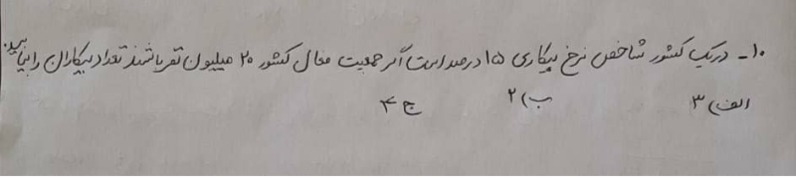 ۱۰- در یک کشور شاخص نرخ بیکاری ۱۵ درصد است اگر جمعیت فعال کشور ۲۰ میلیون نفر باشند تعداد بیکاران را بیابید.
الف) ۳ ب) ۲ ج ۴